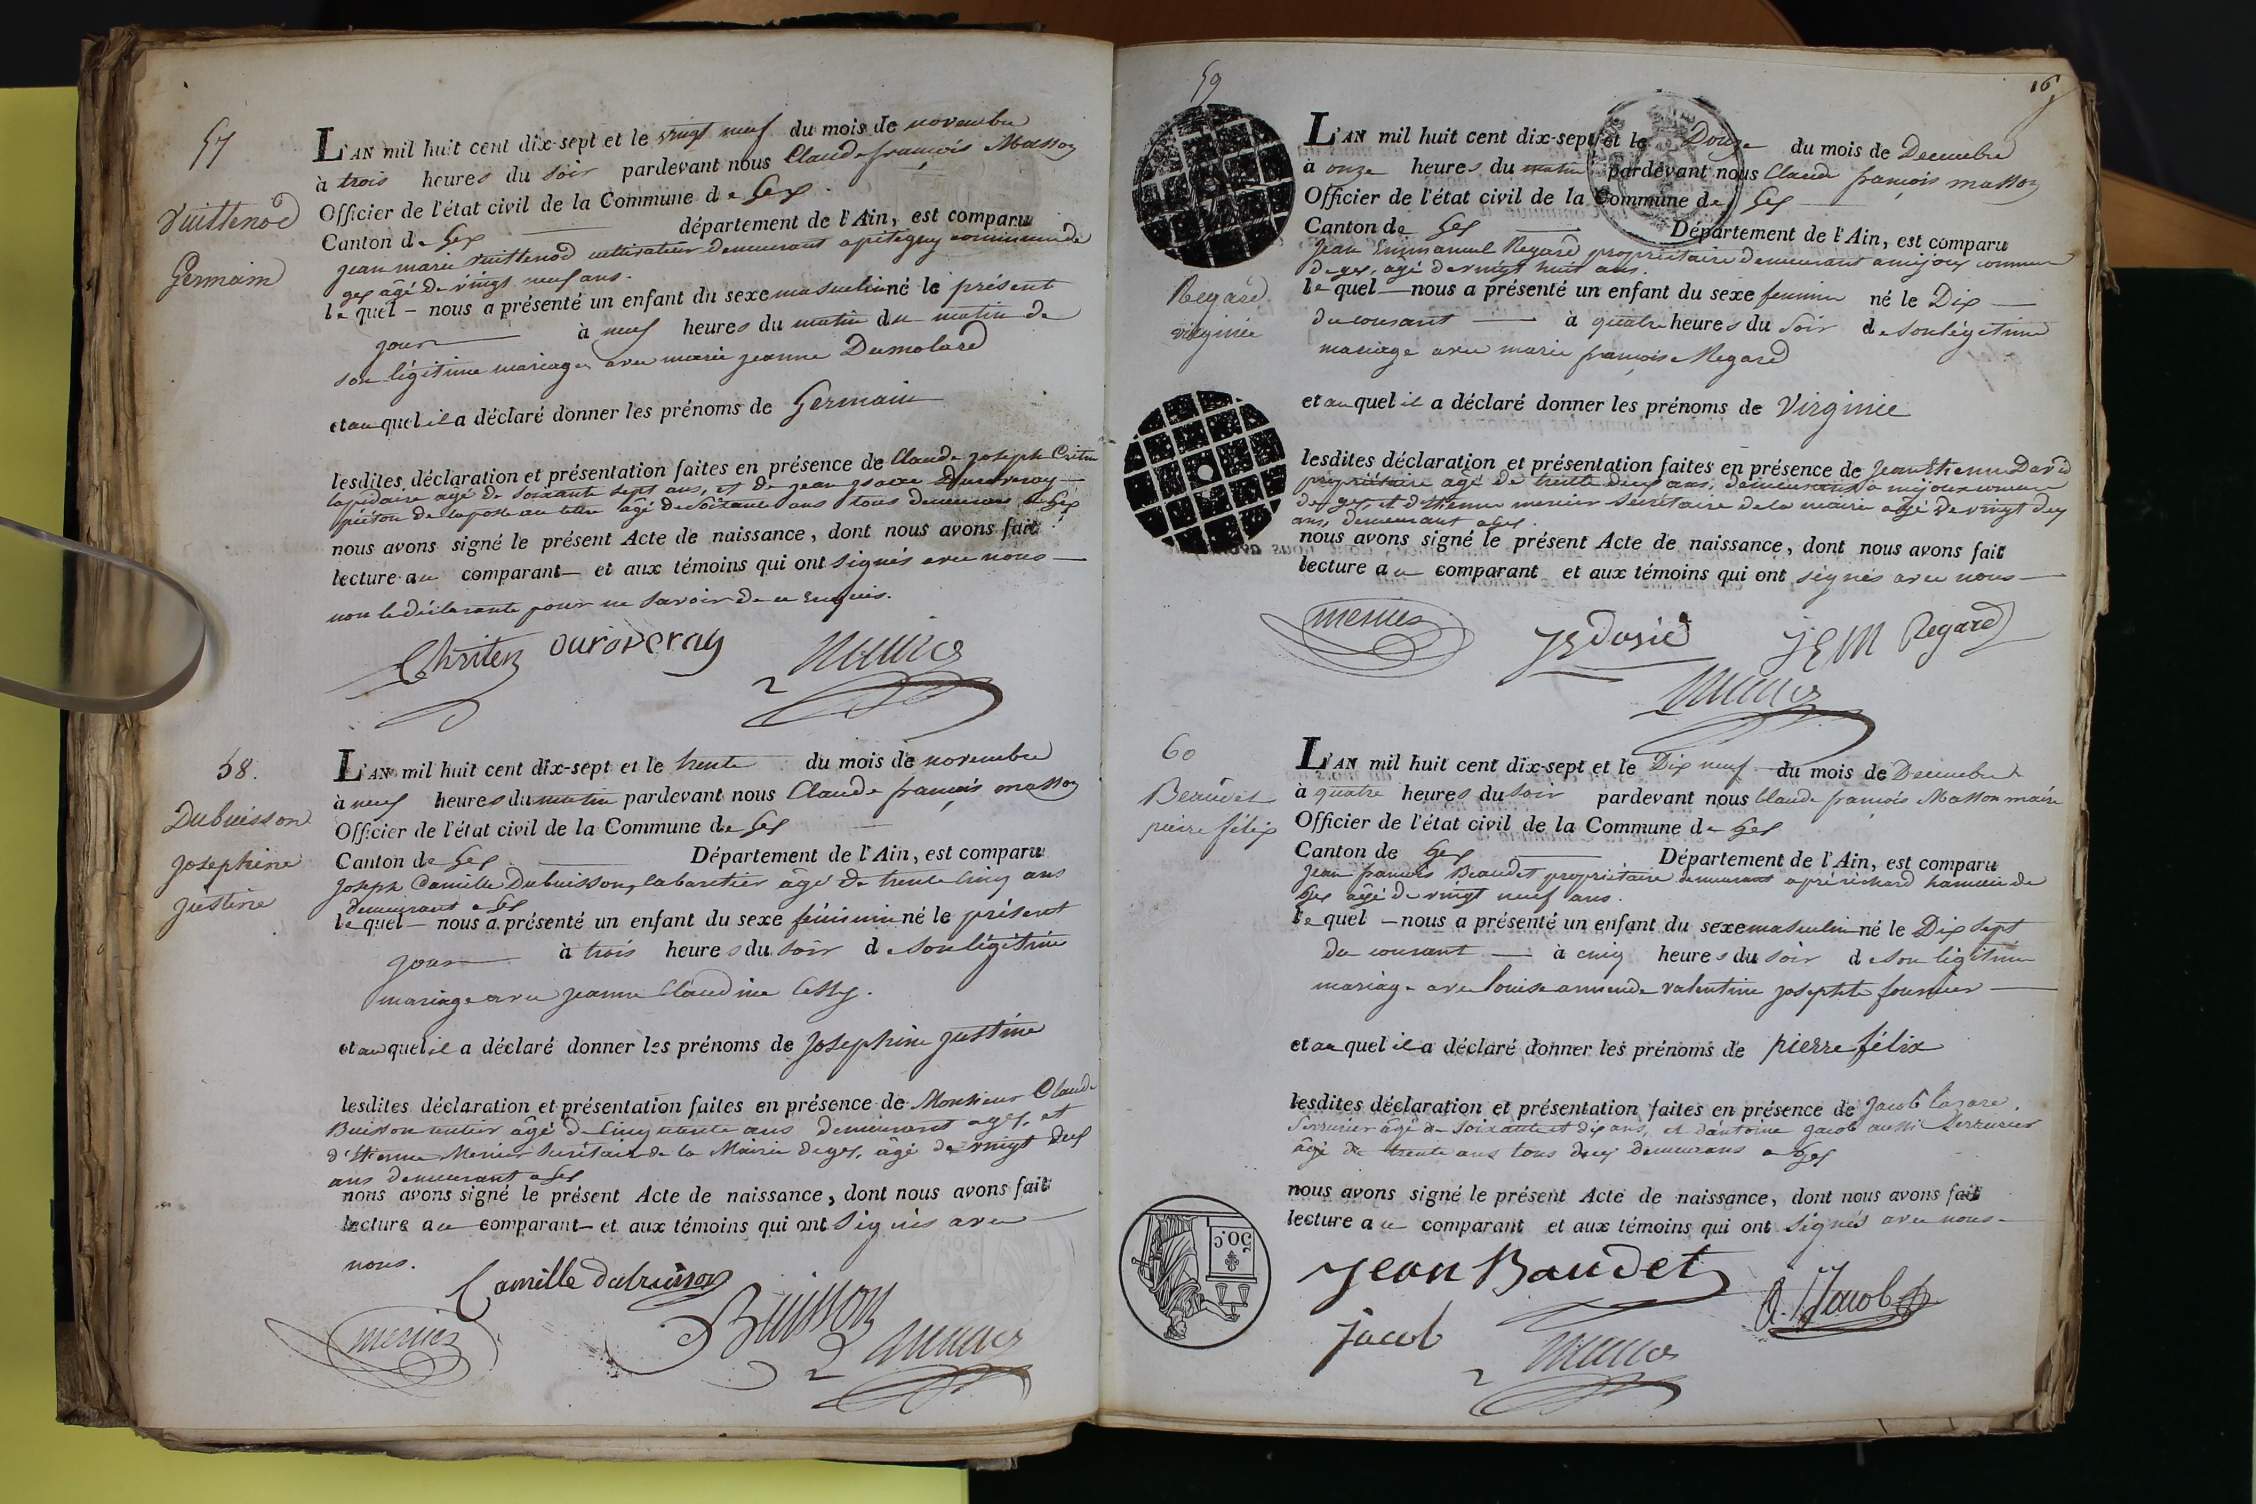 57
Vuittenod
Germain
L'AN mil huit cent dix-sept et le vingt neuf du mois de novembre
à trois heures du soir pardevant nous Claude françois Masson
Officier de l'état civil de la Commune de Gex
Canton de Gex département de l'Ain, est comparu
jean marie vuittenod cultivateur demeurant a pitegny commune de
gex âgé de vingt neuf ans.
lequel nous a présenté un enfant du sexe masculin né le présent
jour à neuf heures du matin du matin de
son légitime mariage avec marie jeanne Dumolard
et auquel il a déclaré donner les prénoms de Germain
lesdites déclaration et présentation faites en présence de Claude joseph
lapidaire agé de soixante sept ans, et de jean
piéton de la poste au lettre âgé de soixante ans tous demeurans a Gex
nous avons signé le présent Acte de naissance, dont nous avons fait
lecture au comparant et aux témoins qui ont signés avec nous
non le déclarante pour ne savoir de ce enquis.
58.
Dubuisson
Josephine
justine
L'AN mil huit cent dix-sept et le trente du mois de novembre
à neuf heures du matin pardevant nous Claude françois masson
Officier de l'état civil de la Commune de Gex
Canton de Gex Département de l'Ain, est comparu
Joseph Camille Dubuisson, cabaretier âgé de trente cinq ans
demeurant a Gex
lequel nous a présenté un enfant du sexe féminin né le présent
jour à trois heures du soir de son légitime
mariage avec jeanne Claudine
et auquel il a déclaré donner les prénoms de Josephine justine
lesdites déclaration et présentation faites en présence de Monsieur Claude
Buisson rentier âgé de Cinquante ans demeurant a gex, et
d'Etienne Mercier Secrétaire de la Mairie de gex, âgé de vingt deux
ans demeurant a Gex
nous avons signé le présent Acte de naissance, dont nous avons fait
lecture au comparant et aux témoins qui ont Signés avec
nous.
Camille dubuisson
Buisson
mercier
16
59
Regard
virginie
L'AN mil huit cent dix-sept et le Douze du mois de Decembre
à onze heures du matin pardevant nous Claude françois masson
Officier de l'état civil de la Commune de Gex
Canton de Gex Département de l'Ain, est comparu
Jean Emmanuel Regard propriétaire demeurant a mijoux commune
de gex, agé de vingt huit ans.
lequel nous a présenté un enfant du sexe feminin né le Dix
du courant à quatre heures du Soir de son légitime
mariage avec marie françoise Regard
et auquel il a déclaré donner les prénoms de Virginie
lesdites déclaration et présentation faites en présence de Jean Etienne David
propriétaire agé de trente deux ans, demeurant a mijoux commune
de gex, et d'Etienne mercier secrétaire de la mairie agé de vingt deux
ans, demeurant a Gex.
nous avons signé le présent Acte de naissance, dont nous avons fait
lecture au comparant et aux témoins qui ont signés avec nous
mercier
JEM Regard
60
Beaudet
pierre félix
L'AN mil huit cent dix-sept et le Dix neuf du mois de Decembre
à quatre heures du soir pardevant nous Claude françois Masson maire
Officier de l'état civil de la Commune de Gex
Canton de Gex Département de l'Ain, est comparu
Jean françois Beaudet propriétaire demeurant a pré richard hameau de
Gex âgé de vingt neuf ans.
lequel nous a présenté un enfant du sexe masculin né le Dix sept
du courant à cinq heures du soir de son légitime
mariage avec louise valentine josephte fournier
et auquel il a déclaré donner les prénoms de pierre félix
lesdites déclaration et présentation faites en présence de Jacob lazare,
Serrurier âgé de soixante et dix ans, et d'antoine jacob aussi Serrurier
âgé de trente ans tous deux demeurans a Gex
nous avons signé le présent Acte de naissance, dont nous avons fait
lecture au comparant et aux témoins qui ont signés avec nous
50.c
Jean Baudet
jacob
A. Jacob